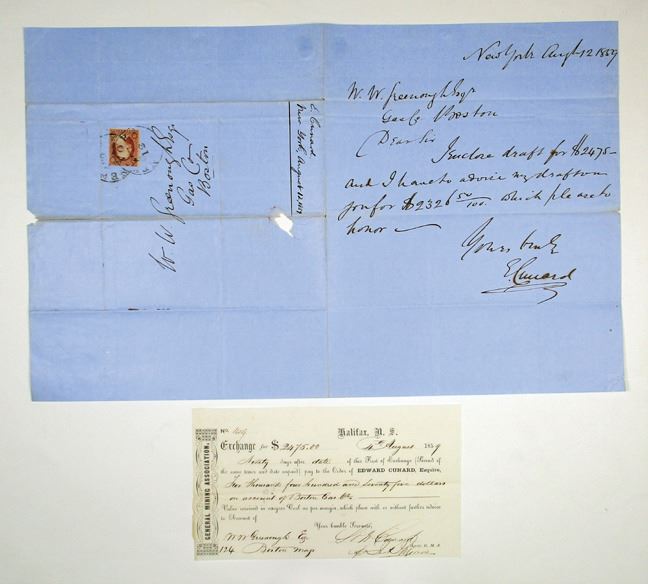 New York Augt 12 1859
W. W. Greenough Esqr
Gas Co Boston
Dear Sir
I enclose draft for $2475-
and I have to advise my draft on
you for $2326 50/100. which please to
honor
Yours truly
E Cunard
E. Cunard
New York, August 12, 1859
W. W. Greenough Esqr
Gas Co
Boston
GENERAL MINING ASSOCIATION.
No.
Halifax, N. S.
Exchange for $2475.00
4th August 1859
Ninety days after date of this First of Exchange (Second of
the same tenor and date unpaid) pay to the Order of EDWARD CUNARD, Esquire,
Two thousand four hundred and seventy five dollars
on account of Boston Gas Co
Value received in cargoes Coal as per margin, which place with or without further advice
to Account of
Your humble Servants,
W W Greenough Esq
Cunard
124 Boston Mass